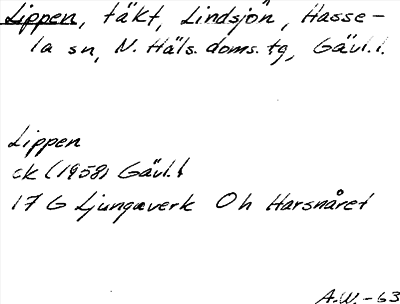 Lippen, täkt, Lindsjön, Hasse-
la sn, N. Häls. doms. tg, Gävl.l.
Lippen
ek (1958) Gävl.l
17 G Ljungaverk Oh Harsnåret
A.W. - 63